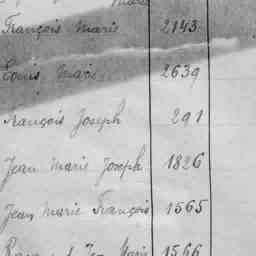 Marie
François Marie 2143
Louis Marie 2639
François Joseph 291
Jean Marie Joseph 1826
Jean Marie François 1565
Marie 1566